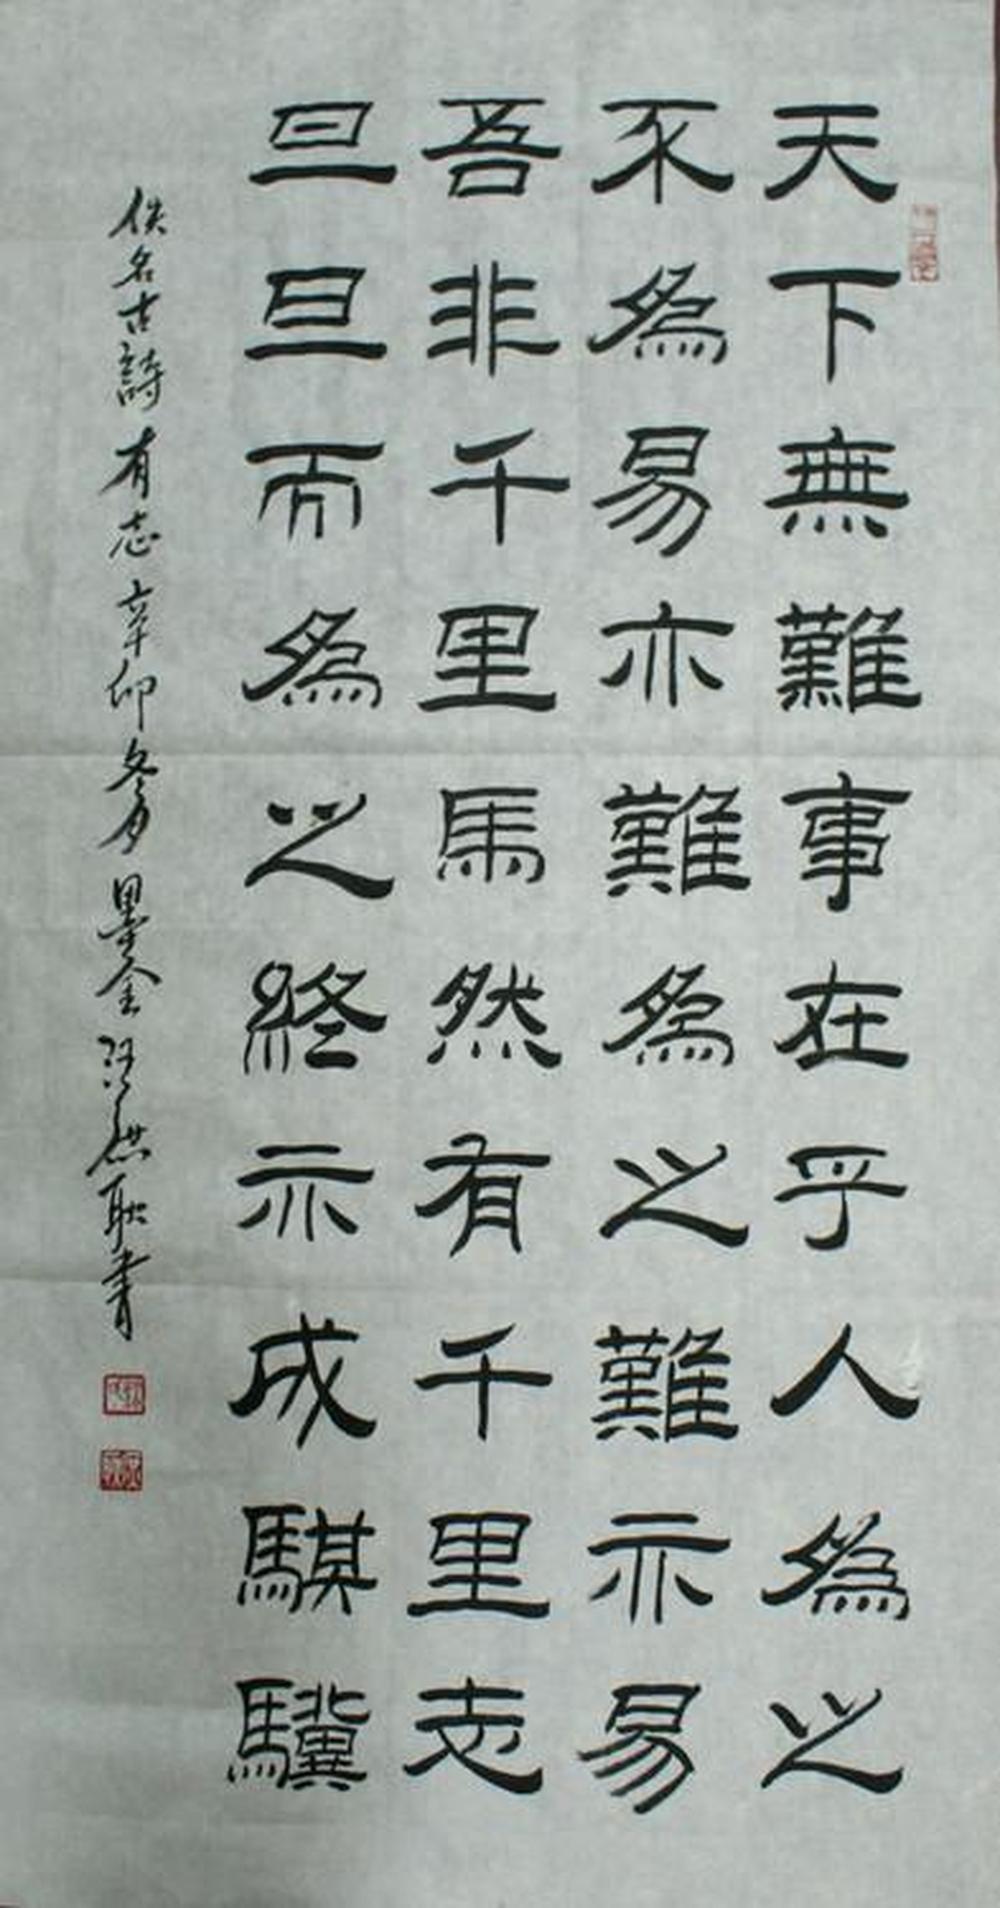 天下無難事在乎人爲之
不爲易亦難爲之難亦易
吾非千里馬然有千里志
旦旦而爲之終亦成騏驥
佚名古詩有志辛卯冬月墨金汪洪耿書